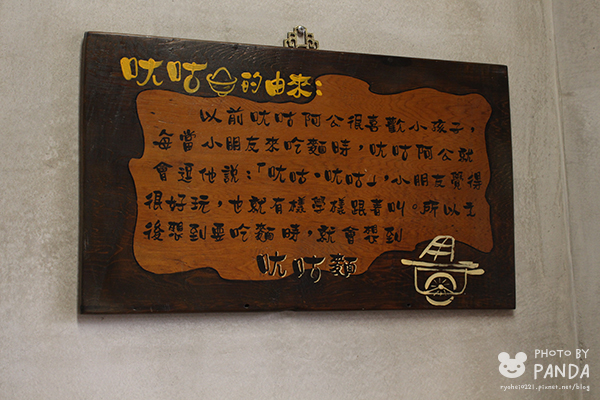 呅咕麵的由來：
以前呅咕阿公很喜歡小孩子，
每當小朋友來吃麵時，呅咕阿公就
會逗他說：「呅咕・呅咕」，小朋友覺得
很好玩，也就有樣學樣跟著叫。所以之
後想到要吃麵時，就會想到
呅咕麵
PHOTO BY
PANDA
ryohei0221.pixnet.net/blog